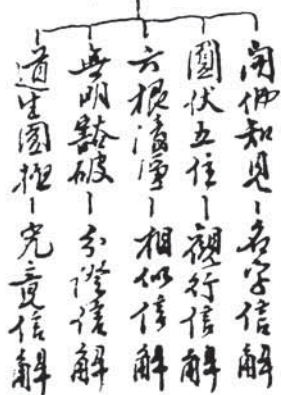 開佛知見—名字信解
圓伏五住—觀行信解
六根清淨—相似信解
無明豁破—分證信解
道生圓極—究竟信解